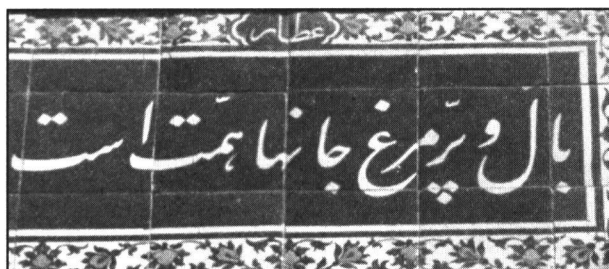 عطار
بال و پرّ مرغ جانها همّت است